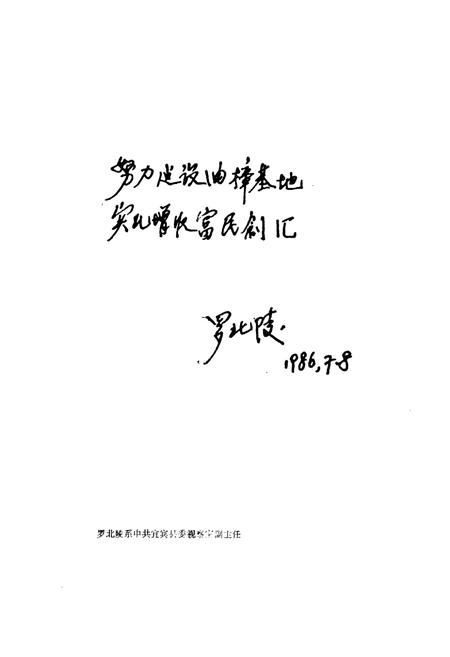 努力建设油樟基地
实现增收富民创汇
罗北陵
1986.7.8
罗北陵系中共宜宾县委视察室副主任